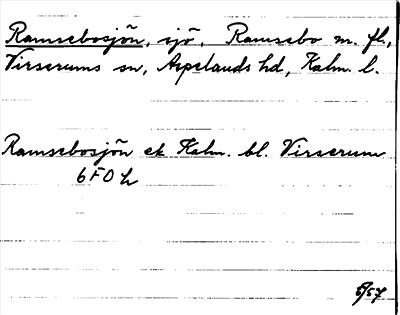 Ramsebosjön, sjö, Ramsebo m. fl.,
Virserums sn, Aspelands hd, Kalm. l.
Ramsebosjön ek Kalm. bl. Virserum
6F0h
5/57